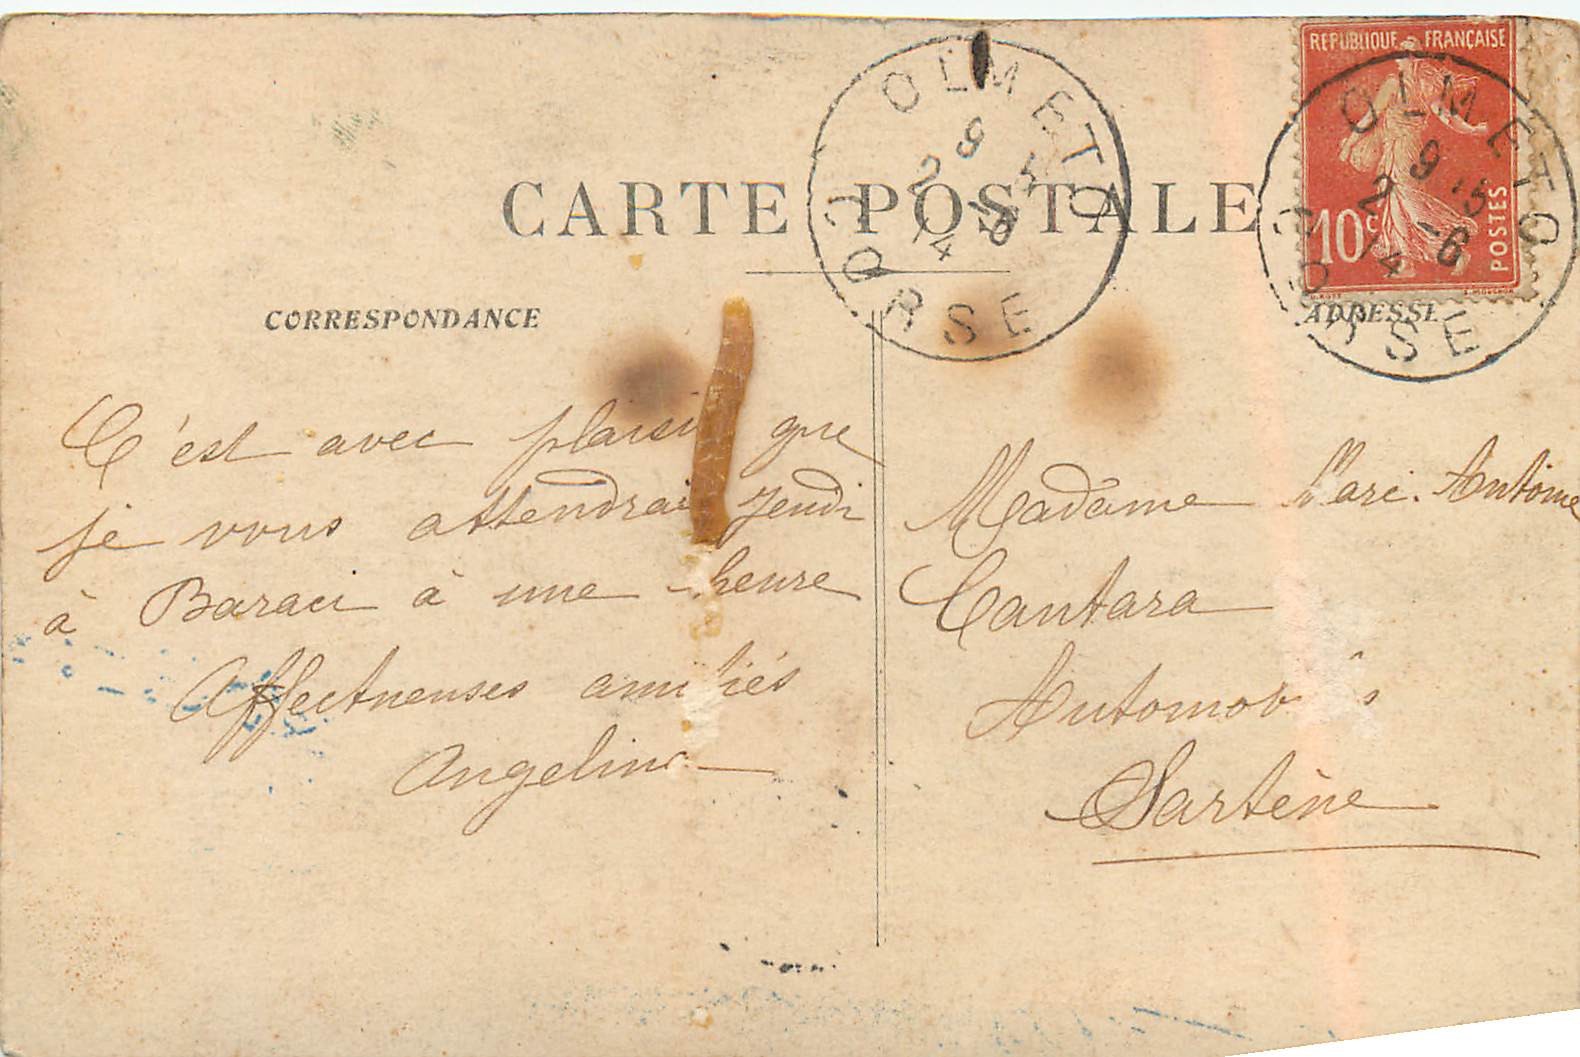 CARTE POSTALE
CORRESPONDANCE
C'est avec plaisir que
je vous attendrai jeudi
à Baraci à une heure
Affectueuses amitiés
Angelina
OLMETO
9 15
2 -6
14
CORSE
REPUBLIQUE FRANÇAISE
10c
POSTES
OLMETO
9 15
2 -6
14
CORSE
ADRESSE
Madame Marc. Antoine
Cantara
Automobiles
Sartène